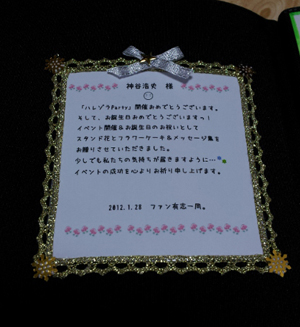 神谷浩史 様
「ハレゾラParty」開催おめでとうございます。
そして、お誕生日おめでとうございますっ！
イベント開催&お誕生日のお祝いとして
スタンド花とフラワーケーキ&メッセージ集を
お贈りさせていただきました。
少しでも私たちの気持ちが届きますように…
イベントの成功を心よりお祈り申し上げます。
2012.1.28 ファン有志一同。